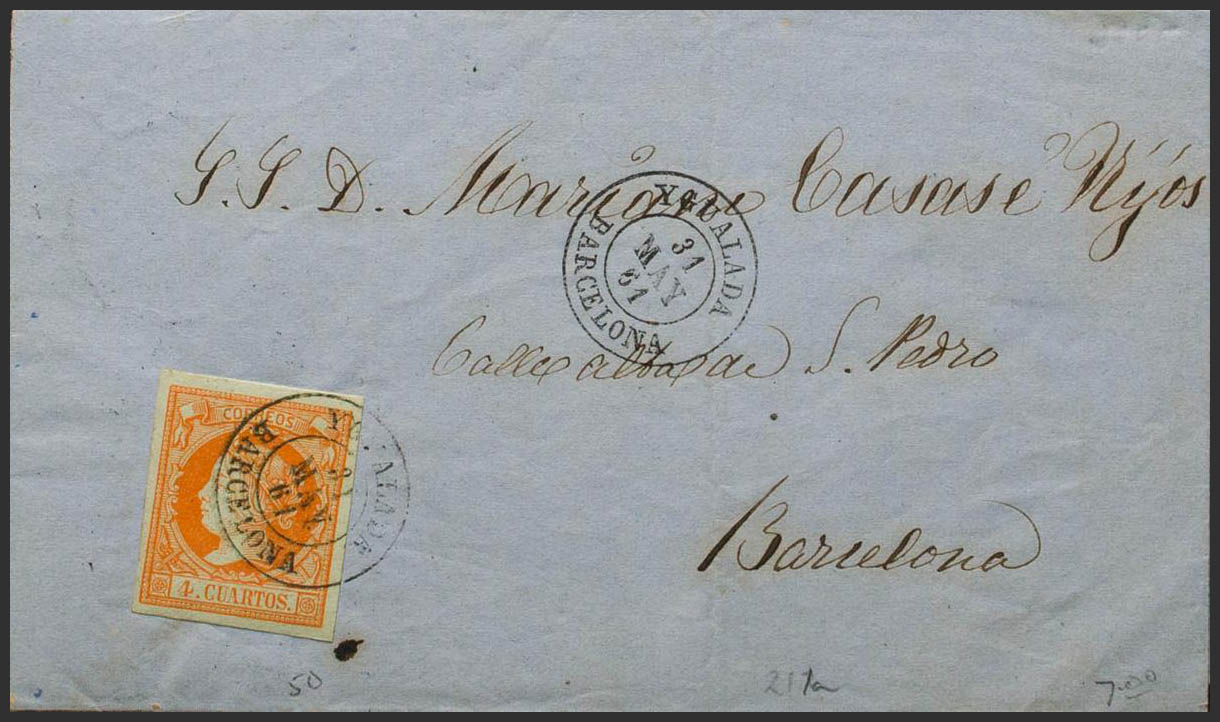 S. S. D. Mariano Casas é Hijos
YGUALADA
31
MAY
61
BARCELONA
Calle alta de S. Pedro
Barcelona
CORREOS
4. CUARTOS.
YGUALADA
31
MAY
61
BARCELONA
50
7.00